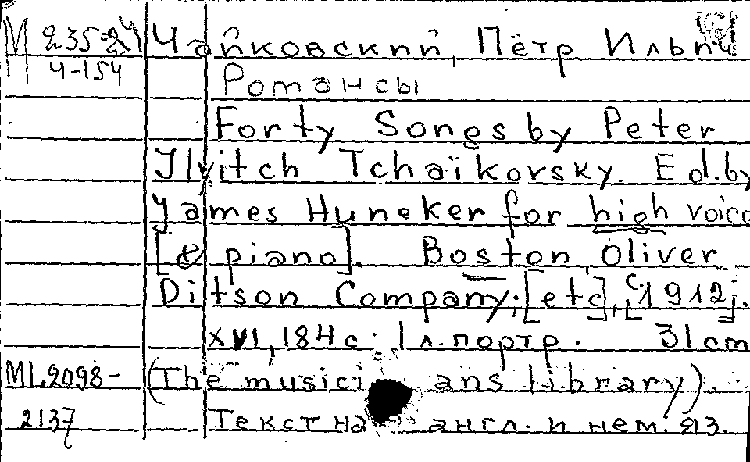 М 235-24 Чайковский, Пётр Ильич
Ч-154 Романсы
Forty Songs by Peter
Ilyitch Tchaïkovsky. Ed. by
James Huneker for high voice
[& piano]. Boston, Oliver
Ditson Company; [etc], [с1912].
XVI, 184 с. 1 л. портр. 31 cm
ML2098- (The musicians library).
2137 Текст на англ. и нем. яз.